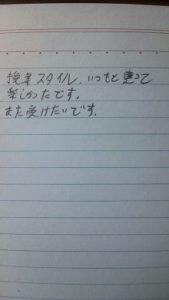 授業スタイル、いつもと違って
楽しかったです。
また受けたいです。